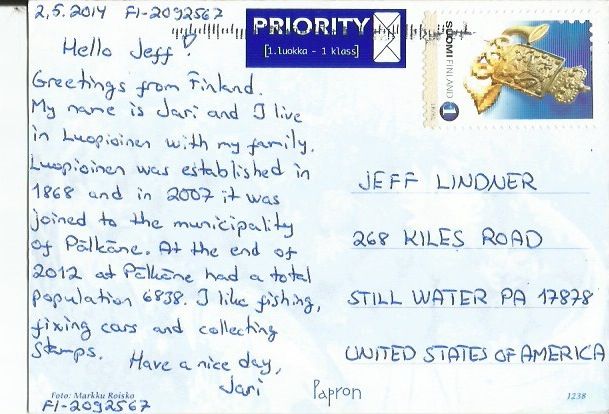 2,5.2014 FI-2092567
PRIORITY
[1.luokka - 1 klass]
SUOMI FINLAND
1
Hello Jeff!
Greetings from Finland.
My name is Jari and I live
in Luopioinen with my family.
Luopioinen was established in
1868 and in 2007 it was
joined to the municipality
of Pälkäne. At the end of
2012 at Pälkäne had a total
population 6838. I like fishing,
fixing cars and collecting
stamps.
Have a nice day,
Jari
JEFF LINDNER
268 KILES ROAD
STILL WATER PA 17878
UNITED STATES OF AMERICA
Foto: Markku Roisko
FI-2092567
Papron
1238